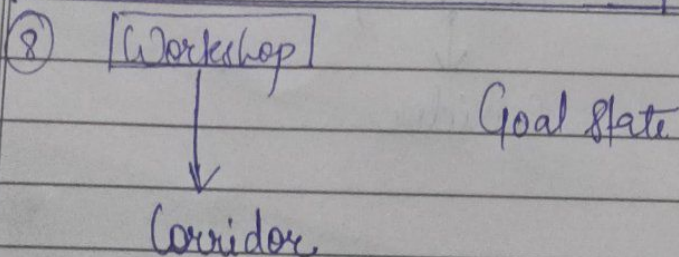 8 Workshop
Goal State
Corridor